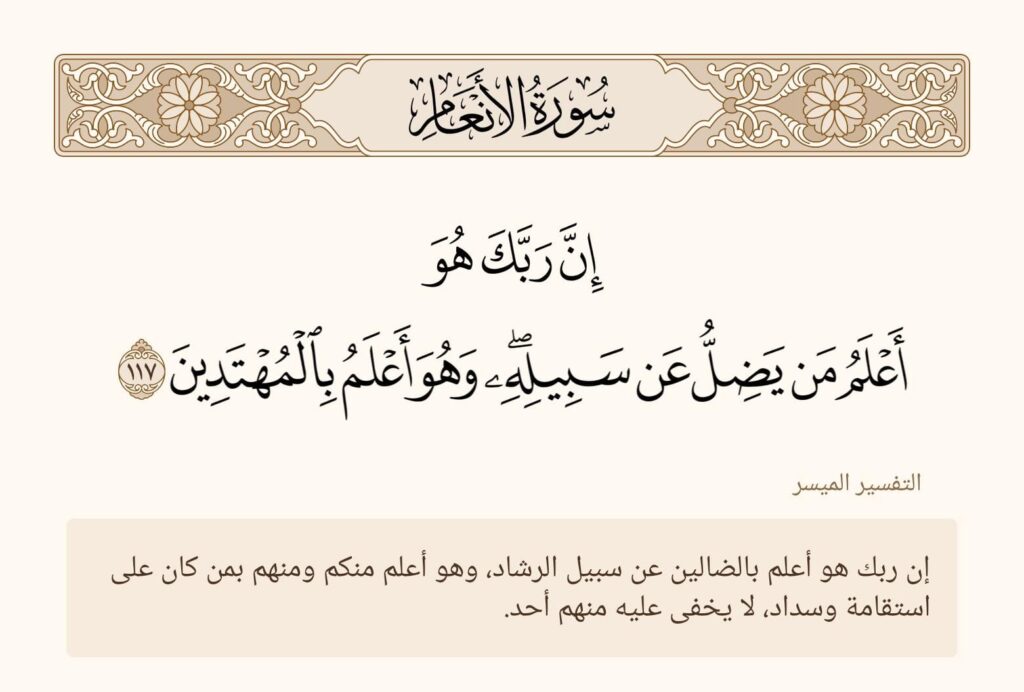 سُورَةُ الأَنْعَامِ
إِنَّ رَبَّكَ هُوَ
أَعْلَمُ مَن يَضِلُّ عَن سَبِيلِهِۦۖ وَهُوَ أَعْلَمُ بِٱلْمُهْتَدِينَ ١١٧
التفسير الميسر
إن ربك هو أعلم بالضالين عن سبيل الرشاد، وهو أعلم منكم ومنهم بمن كان على
استقامة وسداد، لا يخفى عليه منهم أحد.